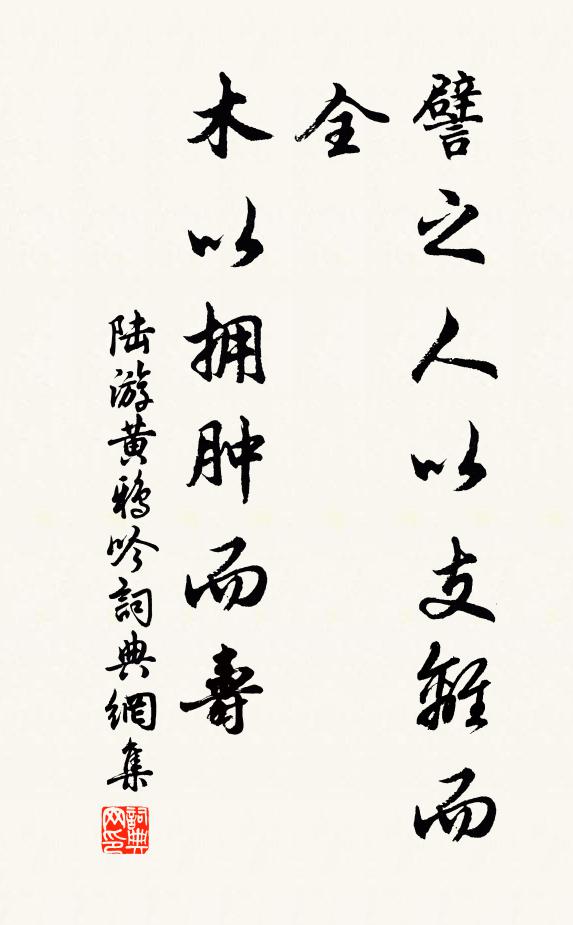 譬之人以支離而
全
木以拥肿而壽
陆游黄鴉吟詞典網集
詞典网印